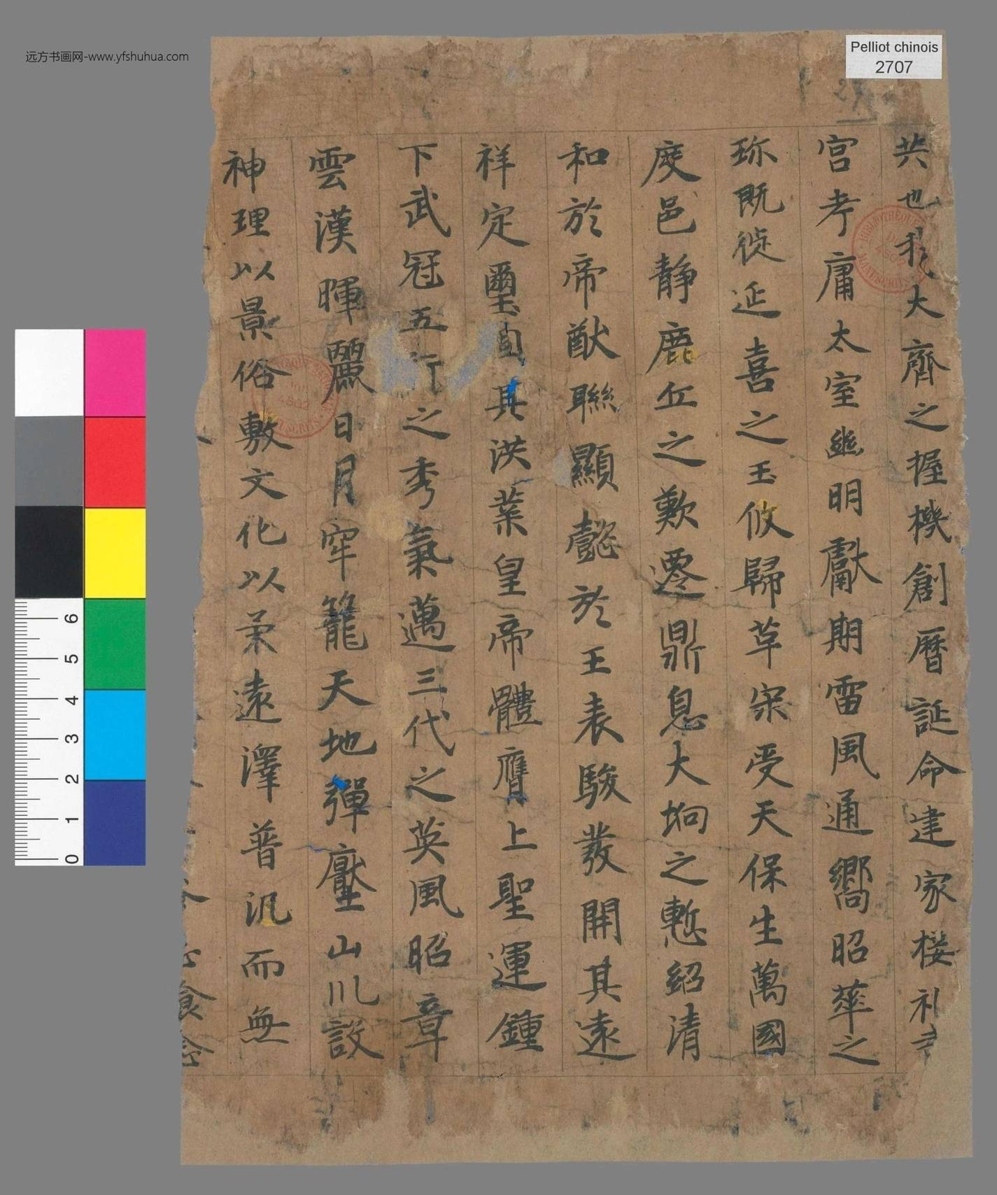 远方书画网-www.yfshuhua.com
Pelliot chinois
2707
共也我大齊之握機創曆誕命建家接礼
宫考庸太室幽明獻期雷風通嚮昭華之
珎既徙延喜之玉攸歸草宋受天保生萬國
度邑静鹿丘之歎遷鼎息大坰之慙紹清
和於帝猷聯顯懿於王表駿發開其遠
祥定璽固其洪業皇帝體膺上聖運鍾
下武冠五行之秀氣邁三代之英風昭章
雲漢暉麗日月牢籠天地彈壓山川設
神理以景俗敷文化以柔遠澤普汎而無
食
6
5
4
3
2
1
0